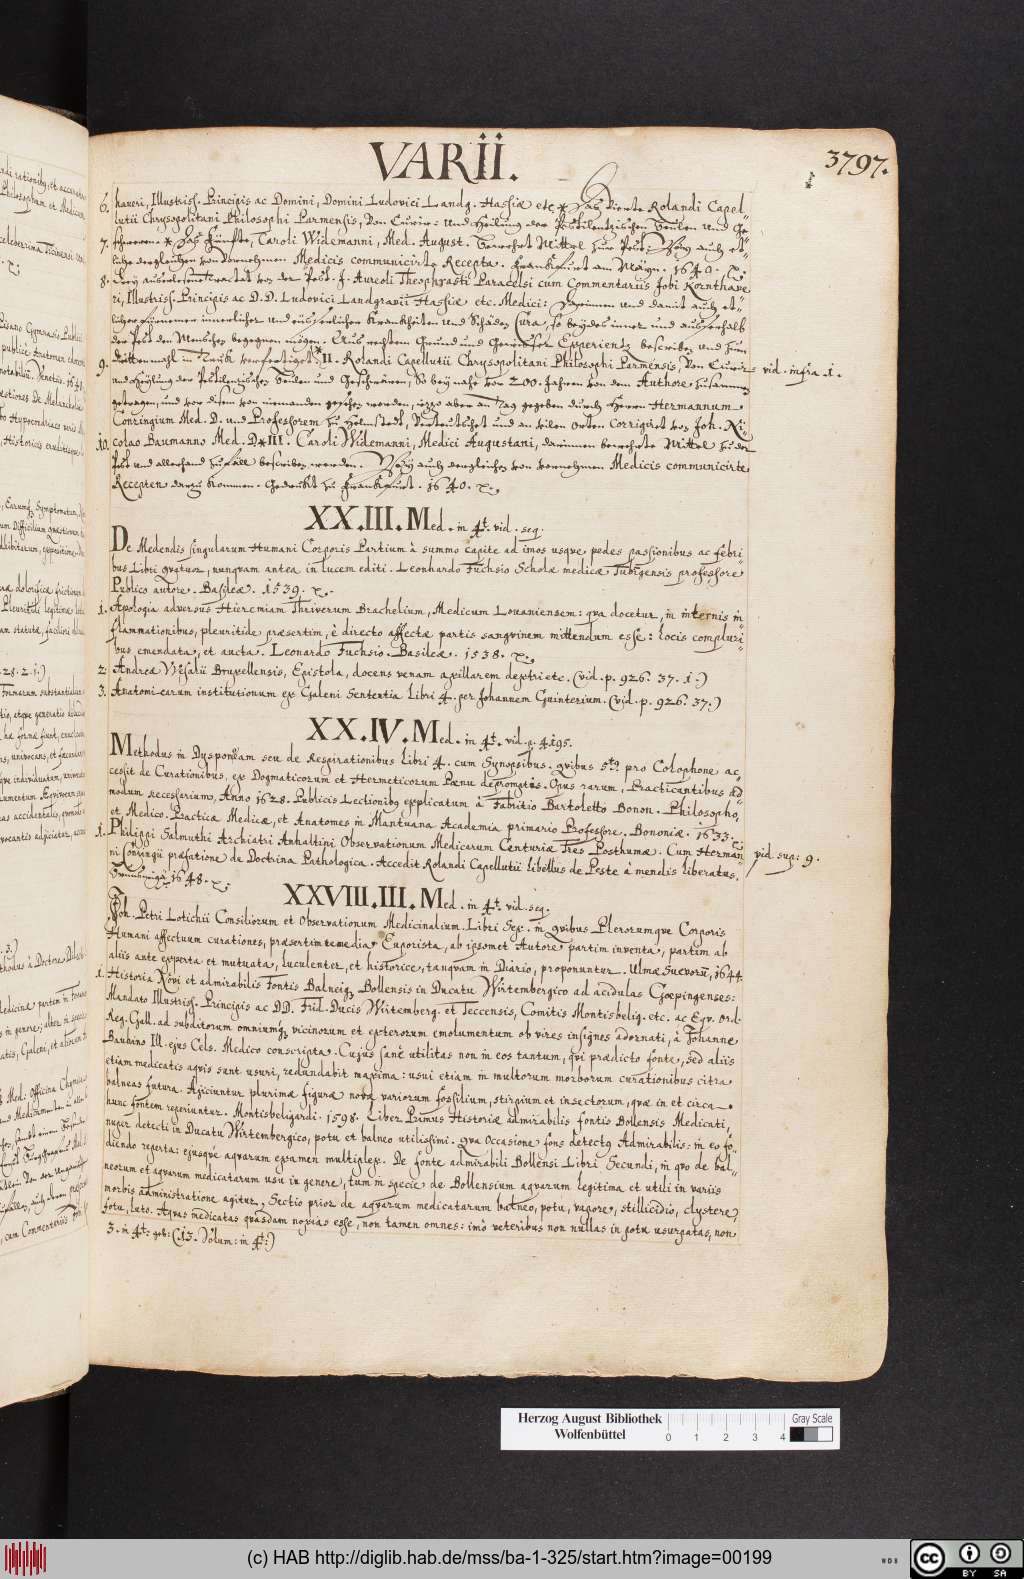 VARII.
3797.
6. haveri, Illustriss. Principis ac Domini, Domini Ludovici Landg. Hassiæ etc * Das Vierte Rolandi Capel=
lutii Chrysopolitani Philosophi Parmensis, Von Curir= und Heilung der Pestilentzischen Beulen und Ge=
7. schweren * Das Fünfte, Caroli Widemanni, Med. August. Bewehrt Mittel für Pest; Wobey auch et=
liche dergleichen von Vornehmen Medicis communicirte Recepta. Franckfurt am Mayn. 1640.
8. Tractat von der Pest. J. Aureoli Theophrasti Paracelsi cum Commentariis Jobi Kornthave
ri, Illustriss. Principis ac D.D. Ludovici Landgravii Hassiæ etc. Medici: Darinnen und damit auch et=
licher innerlicher und eüsserlicher Kranckheiten und Schäden Cura, so beydes inner und ausserhalb
der Pest den Menschen begegnen mögen. Aus rechtem Grund und Gewisser Experientz beschriben und zum
9. drittenmahl in Truck verfertiget.* II. Rolandi Capellutii Chrysopolitani Philosophi Parmensis, Von Curir= vid. infra .1.
und Heylung der Pestilentzischen Beulen und Geschwären, So bey nahe vor 200. Jahren von dem Authore zusammen
getragen, und vor disem von niemanden gesehen worden, jetzo aber an Tag gegeben durch Herrn Hermannum
Conringium Med. D. und Professorem zu Helmstedt, Verteutschet und an vilen orten corrigiret von Joh. Ni=
10. colao Baumanno Med. D.* III. Caroli Widemanni, Medici Augustani, darinnen bewehrte Mittel zu der
Pest und allerhand Zufäll beschriben werden. Wobey auch dergleichen von vornehmen Medicis communicirte
Recepten darzu kommen. Gedruckt zu Franckfurt. 1640.
XX.III. Med. in 4t. vid. seq.
De Medendis singularum Humani Corporis Partium à summo capite ad imos usque pedes passionibus ac febri
bus Libri qvatuor, nunqvam antea in lucem editi. Leonhardo Fuchsio Scholæ medicæ Tubigensis professore
Publico autore. Basileæ. 1539.
1. Apologia adversus Hieremiam Thriverum Brachelium, Medicum Lovaniensem: qva docetur, in internis in=
flammationibus, pleuritide præsertim, è directo affectæ partis sangvinem mittendum esse: locis compluri=
bus emendata, et aucta. Leonardo Fuchsio. Basileæ. 1538.
2. Andreæ Vvesalii Bruxellensis, Epistola, docens venam axillarem dextri etc. (vid. p. 926. 37. 1.)
3. Anatomicarum institutionum ex Galeni Sententia Libri 4. per Johannem Guinterium. (vid. p. 926. 37.)
XX.IV. Med. in 4t. vid. p. 4195.
Methodus in Dyspnœam seu de Respirationibus Libri 4. cum Synopsibus. qvibus 5tus pro Colophone ac
cessit de Curationibus, ex Dogmaticorum et Hermeticorum Pœnu depromptus. Opus rarum, Practicantibus Ad
modum necessarium, Anno 1628. Publicis Lectionibus explicatum à Fabritio Bartoletto Bonon. Philosopho,
et Medico. Practicæ Medicæ, et Anatomes in Mantuana Academia primario Professore. Bononiæ. 1633.
1. Philippi Salmuthi Archiatri Anhaltini Observationum Medicarum Centuriæ Tres Posthumæ. Cum Herman=
ni Conringii præfatione de Doctrina Pathologica. Accedit Rolandi Capellutii libellus de Peste à mendis liberatus. vid. sup: 9.
1648.
XXVIII.III. Med. in 4t. vid. seq.
Joh. Petri Lotichii Consiliorum et Observationum Medicinalium Libri Sex. in qvibus Plerorumqve Corporis
Humani affectuum curationes, præsertim remedia Euporista, ab ipsomet Autore partim inventa, partim ab
aliis ante experta et mutuata, luculenter, et historice, tanqvam in Diario, proponuntur. Ulmæ Suevorum, 1644
1. Historia Novi et admirabilis Fontis Balneiqz Bollensis in Ducatu Wirtembergico ad acidulas Goepingenses:
Mandato Illustriss. Principis ac D.D. Frid. Ducis Wirtemberg. et Teccensis, Comitis Montisbelig. etc. ac Eqv. Ord.
Reg. Gall. ad subditorum omniumqz vicinorum et exterorum emolumentum ob vires insignes adornati, à Johanne
Bauhino Ill. ejus Cels. Medico conscripta. Cujus sanè utilitas non in eos tantum, qvi prædicto fonte, sed aliis
etiam medicatis aqvis sunt usuri, redundabit maxima: usui etiam in multorum morborum curationibus citra
balneas futura. Adjiciuntur plurimæ figuræ novæ variorum fossilium, stirpium et insectorum, qvæ in et circa
hunc fontem reperiuntur. Montisbeligardi. 1598. Liber Primus Historiæ admirabilis fontis Bollensis Medicati,
nuper detecti in Ducatu Wirtembergico, potu et balneo utilissimi. qva Occasione fons detectus Admirabilis: in eo fo=
diendo reperta: ejusqve aqvarum examen multiplex. De fonte admirabili Bollensi Libri Secundi, in qvo de bal=
neorum et aqvarum medicatarum usu in genere, tum in specie de Bollensium aqvarum legitima et utili in variis
morbis administratione agitur. Sectio prior de aqvarum medicatarum balneo, potu, vapore, stillicidio, clystere,
fotu, luto. Aqvas medicatas qvasdam noxias esse, non tamen omnes: imò veteribus non nullas in potu usurpatas, non
3. in 4t: geb: (.13. Volum: in 4t:)
Herzog August Bibliothek
Wolfenbüttel
0 1 2 3 4
Gray Scale
(c) HAB http://diglib.hab.de/mss/ba-1-325/start.htm?image=00199
WDB
cc BY SA